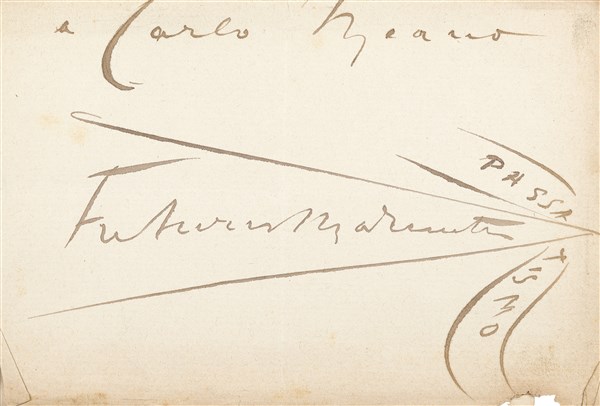 a Carlo Meano
Futurismo Marinetti
PASSATISMO